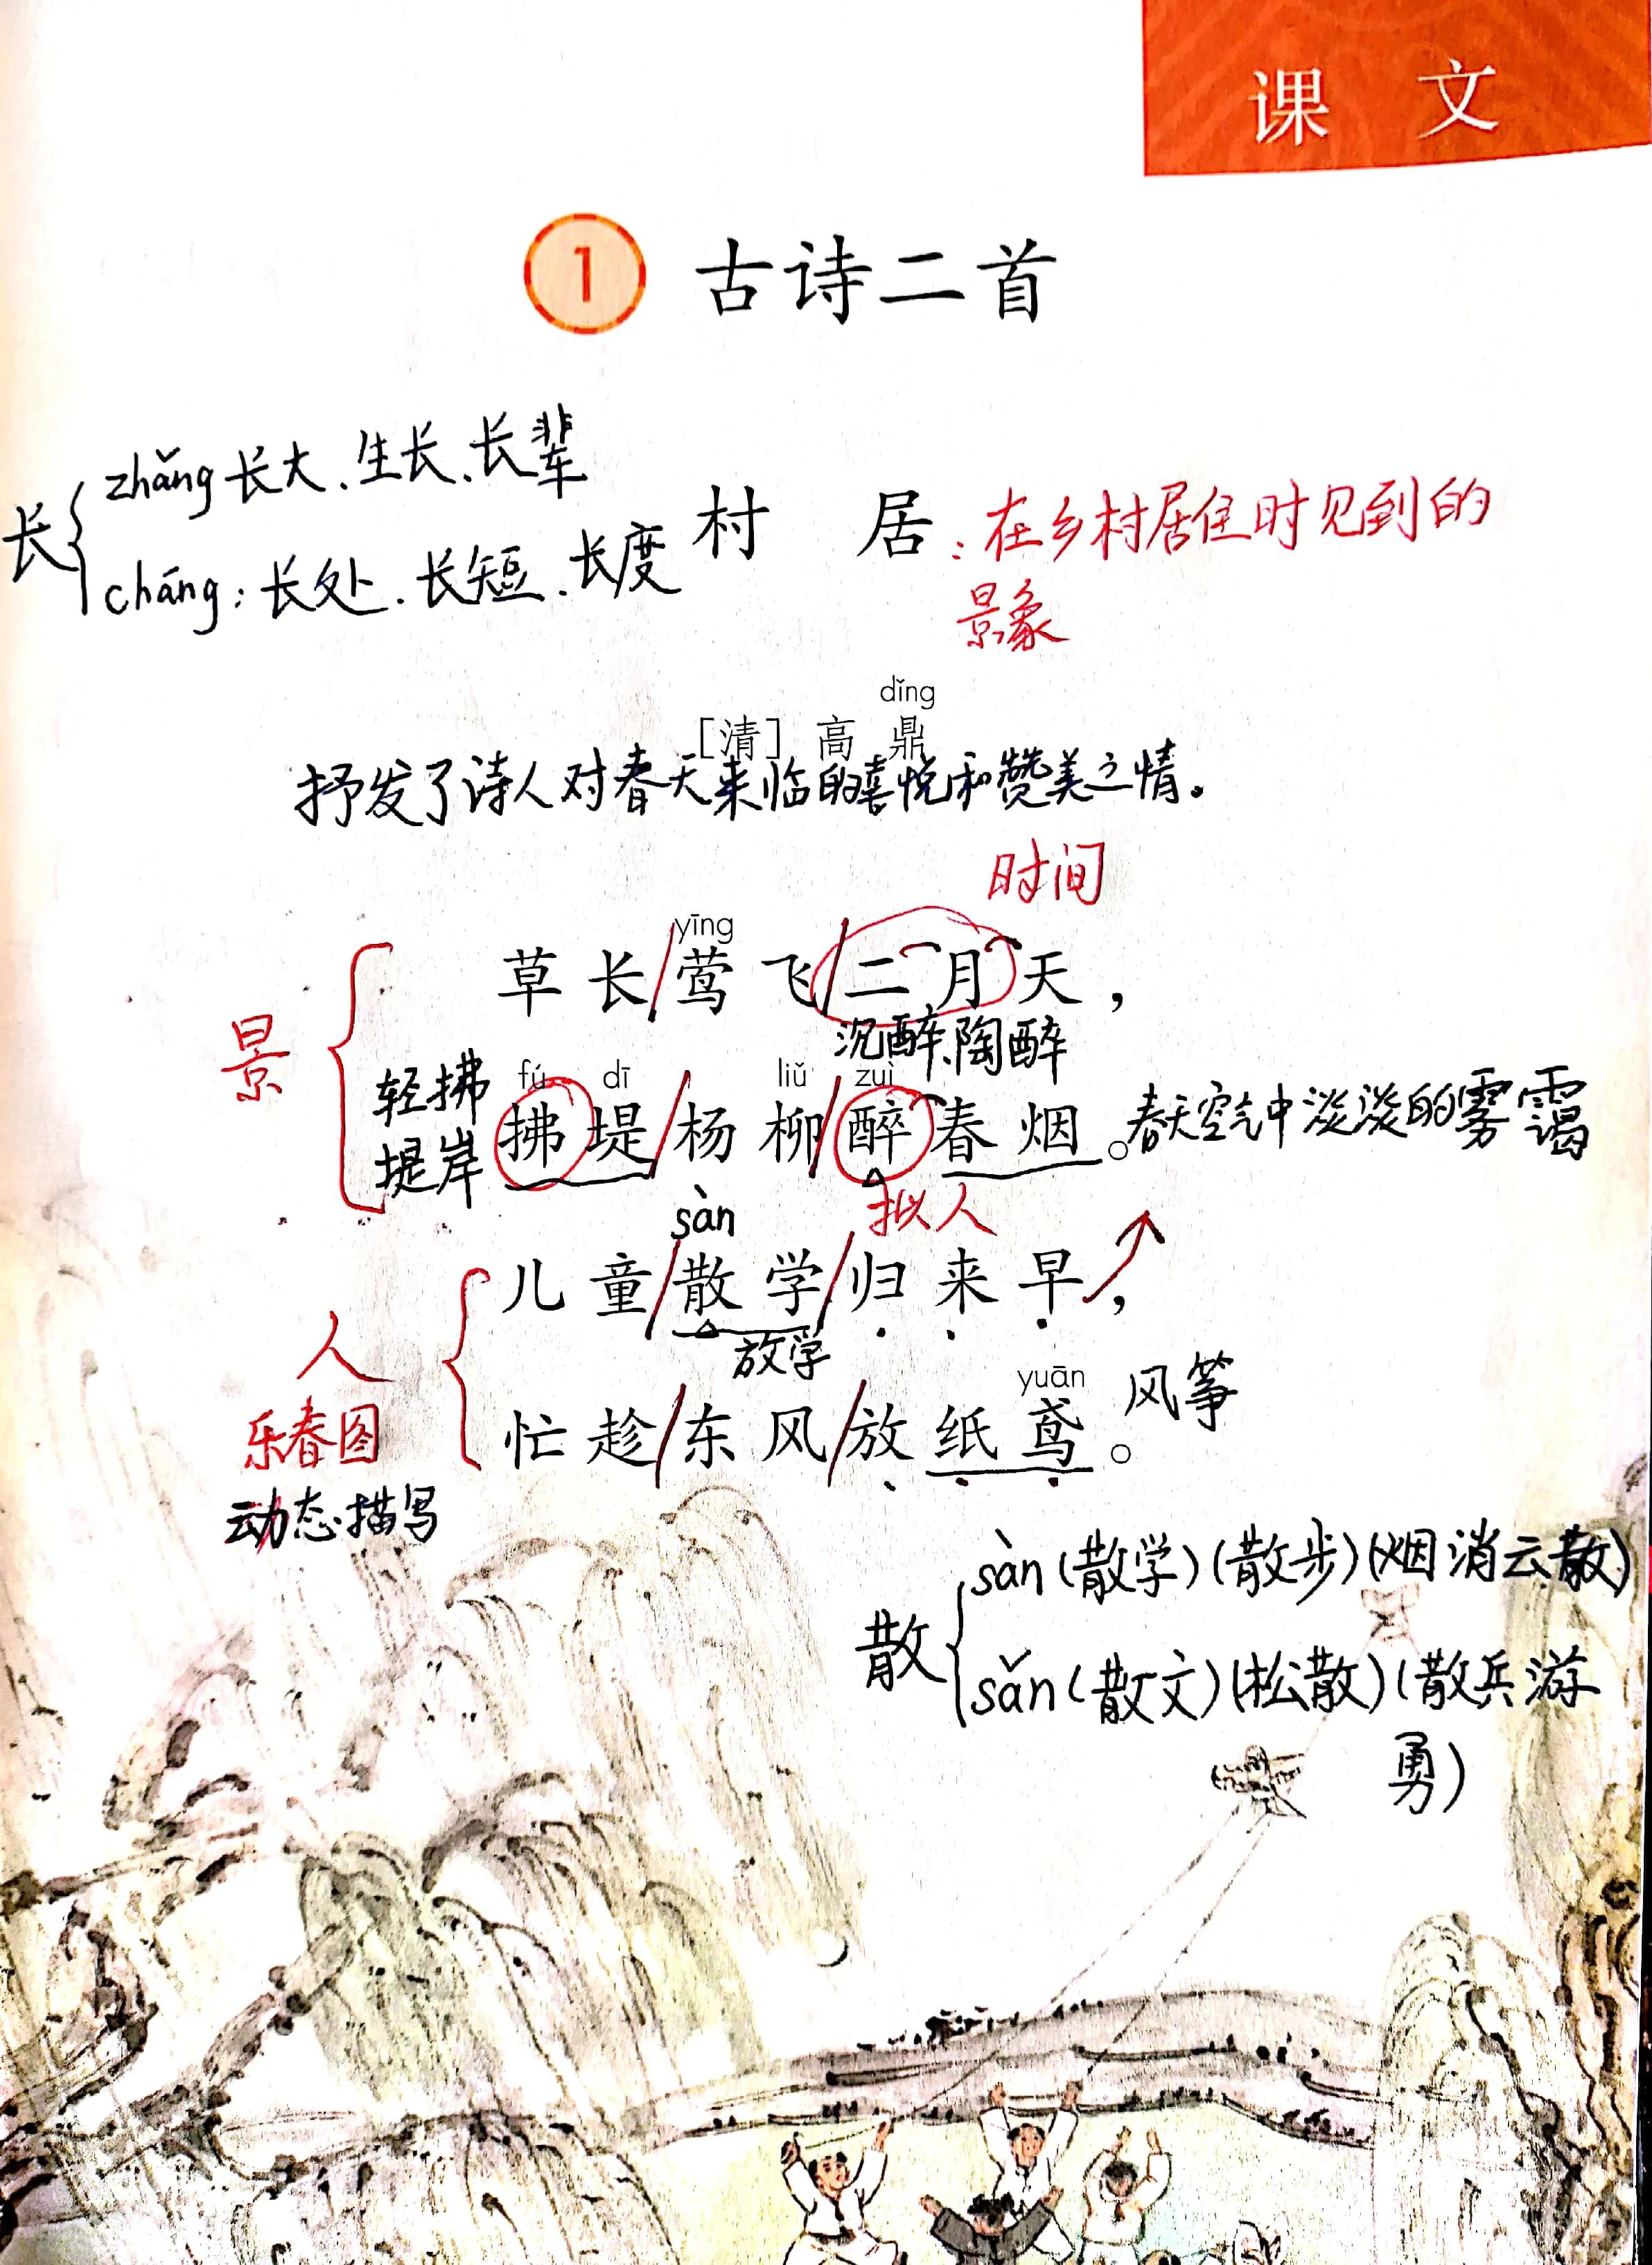 课 文
1 古诗二首
zhǎng 长大、生长、长辈
长
cháng：长处、长短、长度
村 居：在乡村居住时见到的
景象
dǐng
［清］高 鼎
抒发了诗人对春天来临的喜悦和赞美之情。
时间
yīng
草长/莺飞/二月天，
景
沉醉、陶醉
轻拂
堤岸
fú dī liǔ zuì
拂堤/杨柳/醉春烟。春天空气中淡淡的雾霭
拟人
sàn
儿童/散学/归来早，
放学
人
乐春图
动态描写
yuān
忙趁/东风/放纸鸢。风筝
sàn（散学）（散步）（烟消云散）
散
sǎn（散文）（松散）（散兵游
勇）